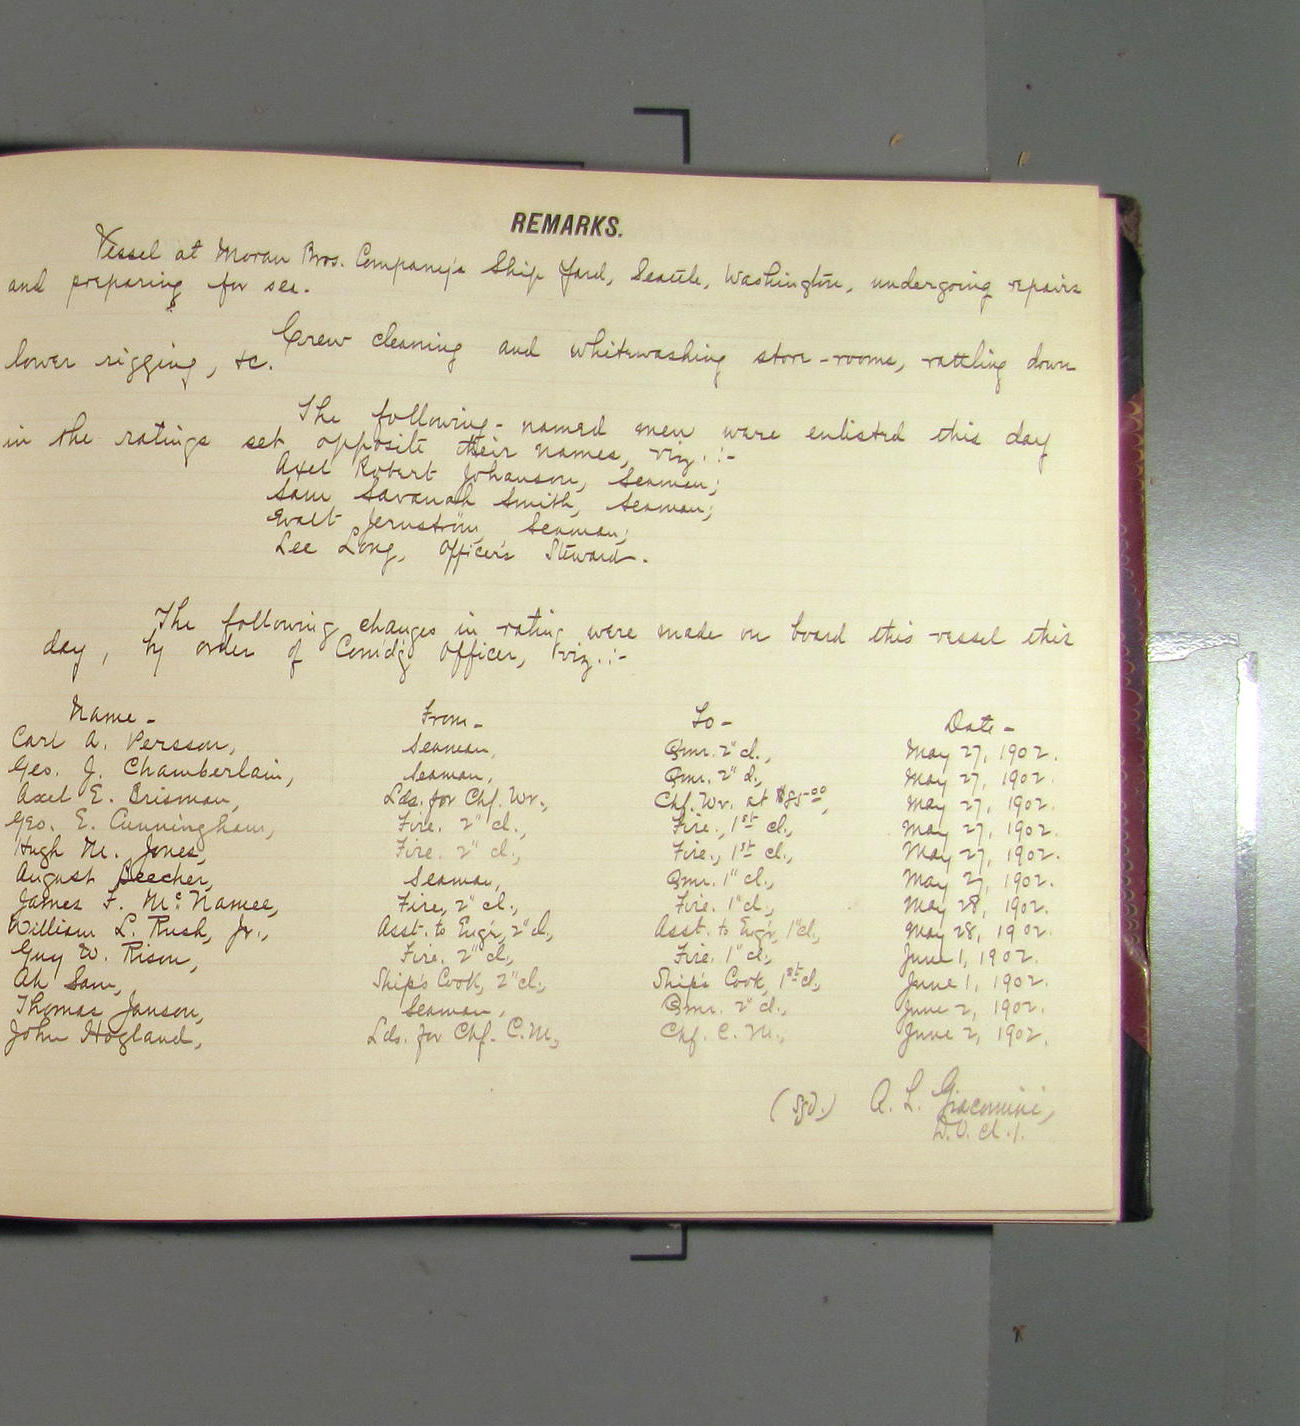 REMARKS.
Vessel at Moran Bros. Company's Ship Yard, Seattle, Washington, undergoing repairs
and preparing for sea.
Crew cleaning and whitewashing store-rooms, rattling down
lower rigging, &c.
The following-named men were enlisted this day
in the ratings set opposite their names, viz.:-
Axel Robert Johanson, Seaman;
Sam Savanah Smith, Seaman;
Evalt Jernström, Seaman;
Lee Long, Officer's Steward.
The following changes in rating were made on board this vessel this
day, by order of Com'd'g Officer, viz.:-
Name- From- To- Date-
Carl A. Persson, Seaman, Qmr. 2" cl., May 27, 1902.
Geo. J. Chamberlain, Seaman, Qmr. 2" cl., May 27, 1902.
Axel E. Brisman, Lds. for Chf. Wr., Chf. Wr. at $85.00, May 27, 1902.
Geo. E. Cunningham, Fire. 2" cl., Fire., 1st cl., May 27, 1902.
Hugh M. Jones, Fire. 2" cl., Fire., 1st cl., May 27, 1902.
August Beecher, Seaman, Qmr. 1" cl., May 27, 1902.
James F. McNamee, Fire, 2" cl., Fire. 1" cl., May 28, 1902.
William L. Rush, Jr., Asst. to Eng'r, 2" cl., Asst. to Eng'r, 1" cl., May 28, 1902.
Guy W. Rison, Fire. 2" cl., Fire. 1" cl., June 1, 1902.
Ah Sam, Ship's Cook, 2" cl., Ship's Cook, 1st cl., June 1, 1902.
Thomas Janson, Seaman, Qmr. 2" cl., June 2, 1902.
John Hogland, Lds. for Chf. C.M., Chf. C.M., June 2, 1902.
(Sgd.) A. L. Giacomini,